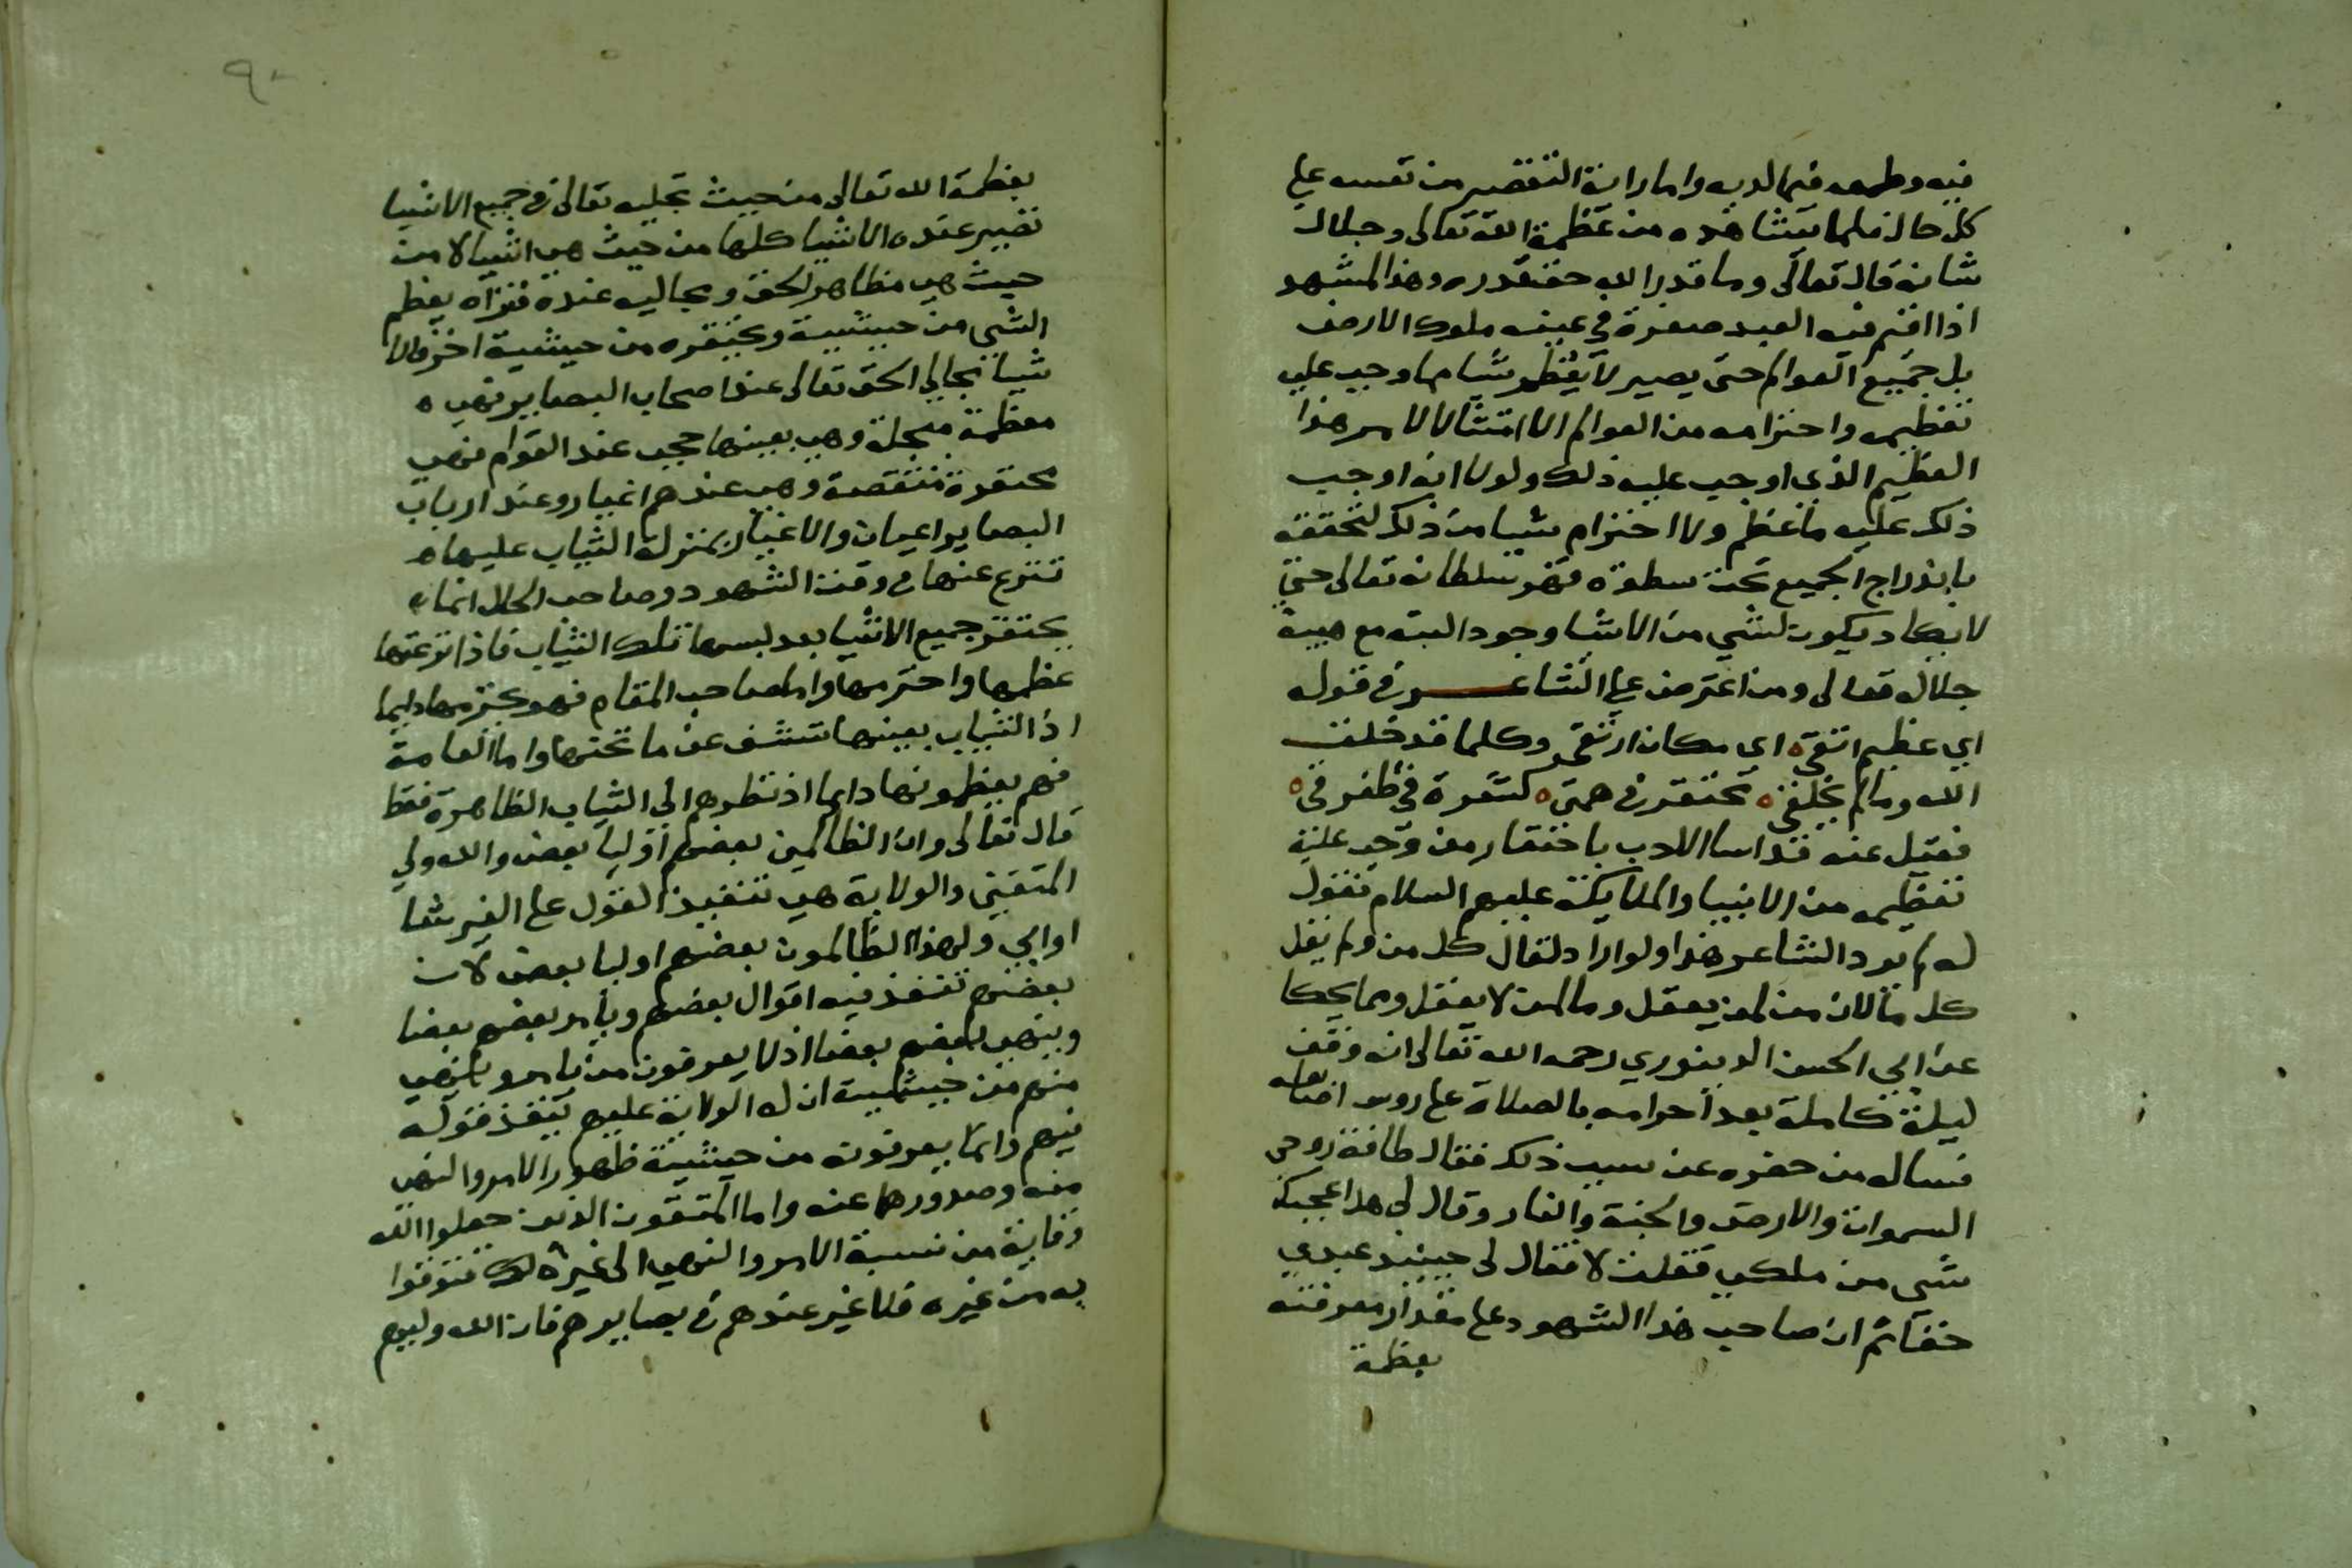 فيه وطمعه فيما لديه واما راية التقصير من نفسه علي
كل حال فلما يشاهده من عظمة الله تعالى وجلال
شانه قال تعالى وما قدروا الله حق قدره وهذا المشهد
اذا اقيم فيه العبد صغرت في عينه ملوك الارض
بل جميع العوالم حتى يصير لا يعظم شيا مما وجب عليه
تعظيمه واحترامه من العوالم الا امتثالا لامر هذا
العظيم الذي اوجب عليه ذلك ولولا انه اوجب
ذلك عليه ما عظم ولا احترام شيا من ذلك لتحققه
باندراج الجميع تحت سطوة قهر سلطانه تعالى حتى
لا يكاد يكون لشي من الاشيا وجود البته مع هيبة
جلاله تعالى ومن اعترض علي الشاعر في قوله
اي عظيم اتقي ه اي مكان ارتقي وكلما قد خلق
الله وما لم يخلق ه محتقر في همتي ه كشعرة في مفرقي ه
فقيل عنه قد اسا الادب باحتقار من وجب عليه
تعظيمه من الانبيا والملايكة عليهم السلام نقول
له لم يرد الشاعر هذا ولو اراد لقال كل من ولم يقل
كل ما لان من لمن يعقل وما لمن لا يعقل ومما يحكا
عن ابي الحسن الدينوري رحمه الله تعالى انه وقف
ليلة كاملة بعد احرامه بالصلاة علي روس اصابعه
فساله من حضره عن سبب ذلك فقال طافة روحي
السموات والارض والجنة والنار وقال لي هل اعجبك
شي من ملكي فقلت لا فقال لي حينيذ عبدي
حقا ثم ان صاحب هذا الشهود على مقدار معرفته
بعظمة
٩٠
بعظمة الله تعالى من حيث تجليه تعالى في جميع الاشيا
تصير عنده الاشيا كلها من حيث هي اشيا لا من
حيث هي مظاهر الحق ومجاليه عنده فتراه يعظم
الشي من حيثية ويحتقره من حيثية اخرى فالا
شيا مجالي الحق تعالى عند اصحاب البصاير فهي ه
معظمة مبجلة وهي بعينها حجب عند العوام فهي
محتقرة منتقصة وهي عندهم اغيار وعند ارباب
البصاير اعيان والاغيار بمنزلة الثياب عليها ه
تنزع عنها في وقت الشهود وصاحب الحال انما
يحتقر جميع الاشيا بعد لبسها تلك الثياب فاذا نزعتها
عظمها واحترمها واما صاحب المقام فهو يحترمها دايما
اذ الثياب بعينها تشف عن ما تحتها واما العامة
فهم يعظمونها دايما اذ نظرهم الي الثياب الظاهرة فقط
قال تعالى وان الظالمين بعضهم اوليا بعض والله ولي
المتقين والولاية هي تنفيذ القول علي الغير شا
او ابي ولهذا الظالمون بعضهم اوليا بعض لان
بعضهم تنفذ فيه اقوال بعضهم ويامر بعضهم بعضا
وينهي بعضهم بعضا اذ لا يعرفون من يامر وينهي
منهم من حيثية ان له الولاية عليهم ينفذ قوله
فيهم دايما يعرفونه من حيثية ظهور الامر والنهي
منه وصدورهما عنه واما المتقون الذين جعلوا الله
وقاية من نسبة الامر والنهي الى غيره فتوقوا
به من غيره فلا غير عندهم في بصايرهم فان الله وليهم